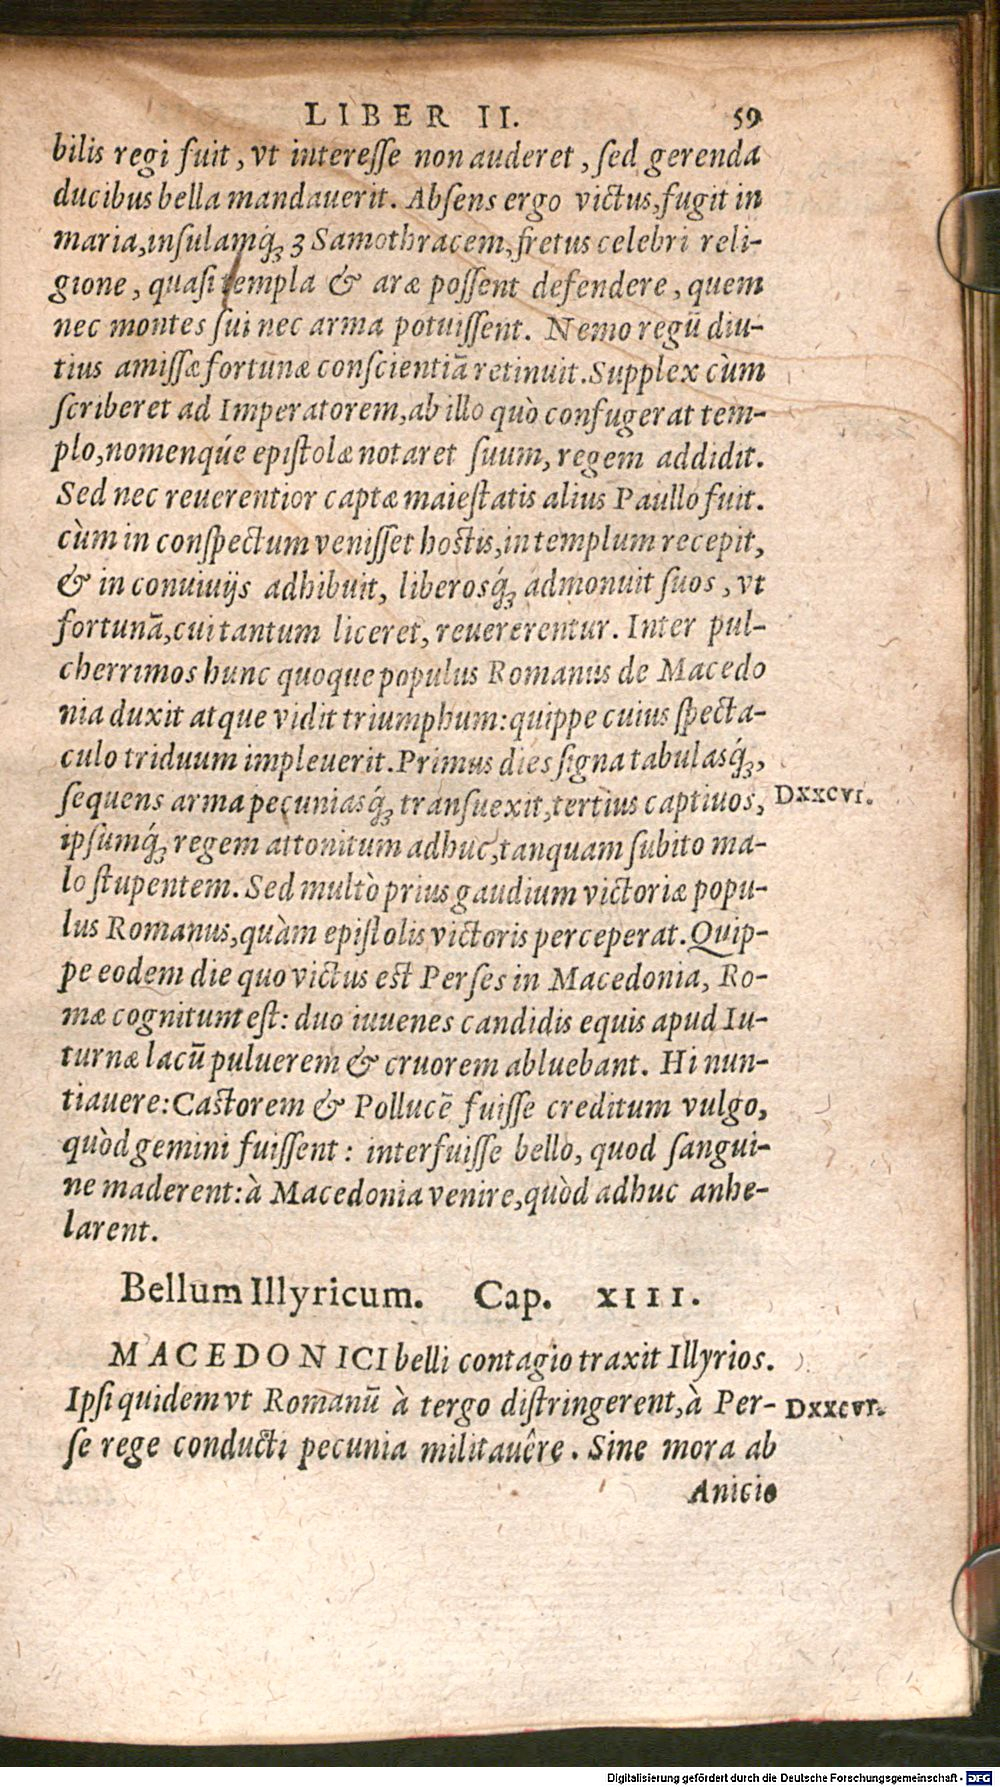 LIBER II. 59
bilis regi fuit, vt interesse non auderet, sed gerenda
ducibus bella mandauerit. Absens ergo victus, fugit in
maria, insulamq́; 3 Samothracem, fretus celebri reli-
gione, quasi templa & aræ possent defendere, quem
nec montes sui nec arma potuissent. Nemo regū diu-
tius amissæ fortunæ conscientiā retinuit. Supplex cùm
scriberet ad Imperatorem, ab illo quò confugerat tem-
plo, nomenqúe epistolæ notaret suum, regem addidit.
Sed nec reuerentior captæ maiestatis alius Paullo fuit.
cùm in conspectum venisset hostis, in templum recepit,
& in conuiuijs adhibuit, liberosq́; admonuit suos, vt
fortunā, cui tantum liceret, reuererentur. Inter pul-
cherrimos hunc quoque populus Romanus de Macedo
nia duxit atque vidit triumphum: quippe cuius specta-
culo triduum impleuerit. Primus dies signa tabulasq́;,
sequens arma pecuniasq́; transuexit, tertius captiuos, DXXCVI.
ipsumq́; regem attonitum adhuc, tanquam subito ma-
lo stupentem. Sed multò prius gaudium victoriæ popu-
lus Romanus, quàm epistolis victoris perceperat. Quip-
pe eodem die quo victus est Perses in Macedonia, Ro-
mæ cognitum est: duo iuuenes candidis equis apud Iu-
turnæ lacū puluerem & cruorem abluebant. Hi nun-
tiauere: Castorem & Pollucē fuisse creditum vulgo,
quòd gemini fuissent: interfuisse bello, quod sangui-
ne maderent: à Macedonia venire, quòd adhuc anhe-
larent.
Bellum Illyricum. Cap. XIII.
MACEDONICI belli contagio traxit Illyrios.
Ipsi quidem vt Romanū à tergo distringerent, à Per- DXXCVI.
se rege conducti pecunia militauêre. Sine mora ab
Anicio
Digitalisierung gefördert durch die Deutsche Forschungsgemeinschaft - DFG